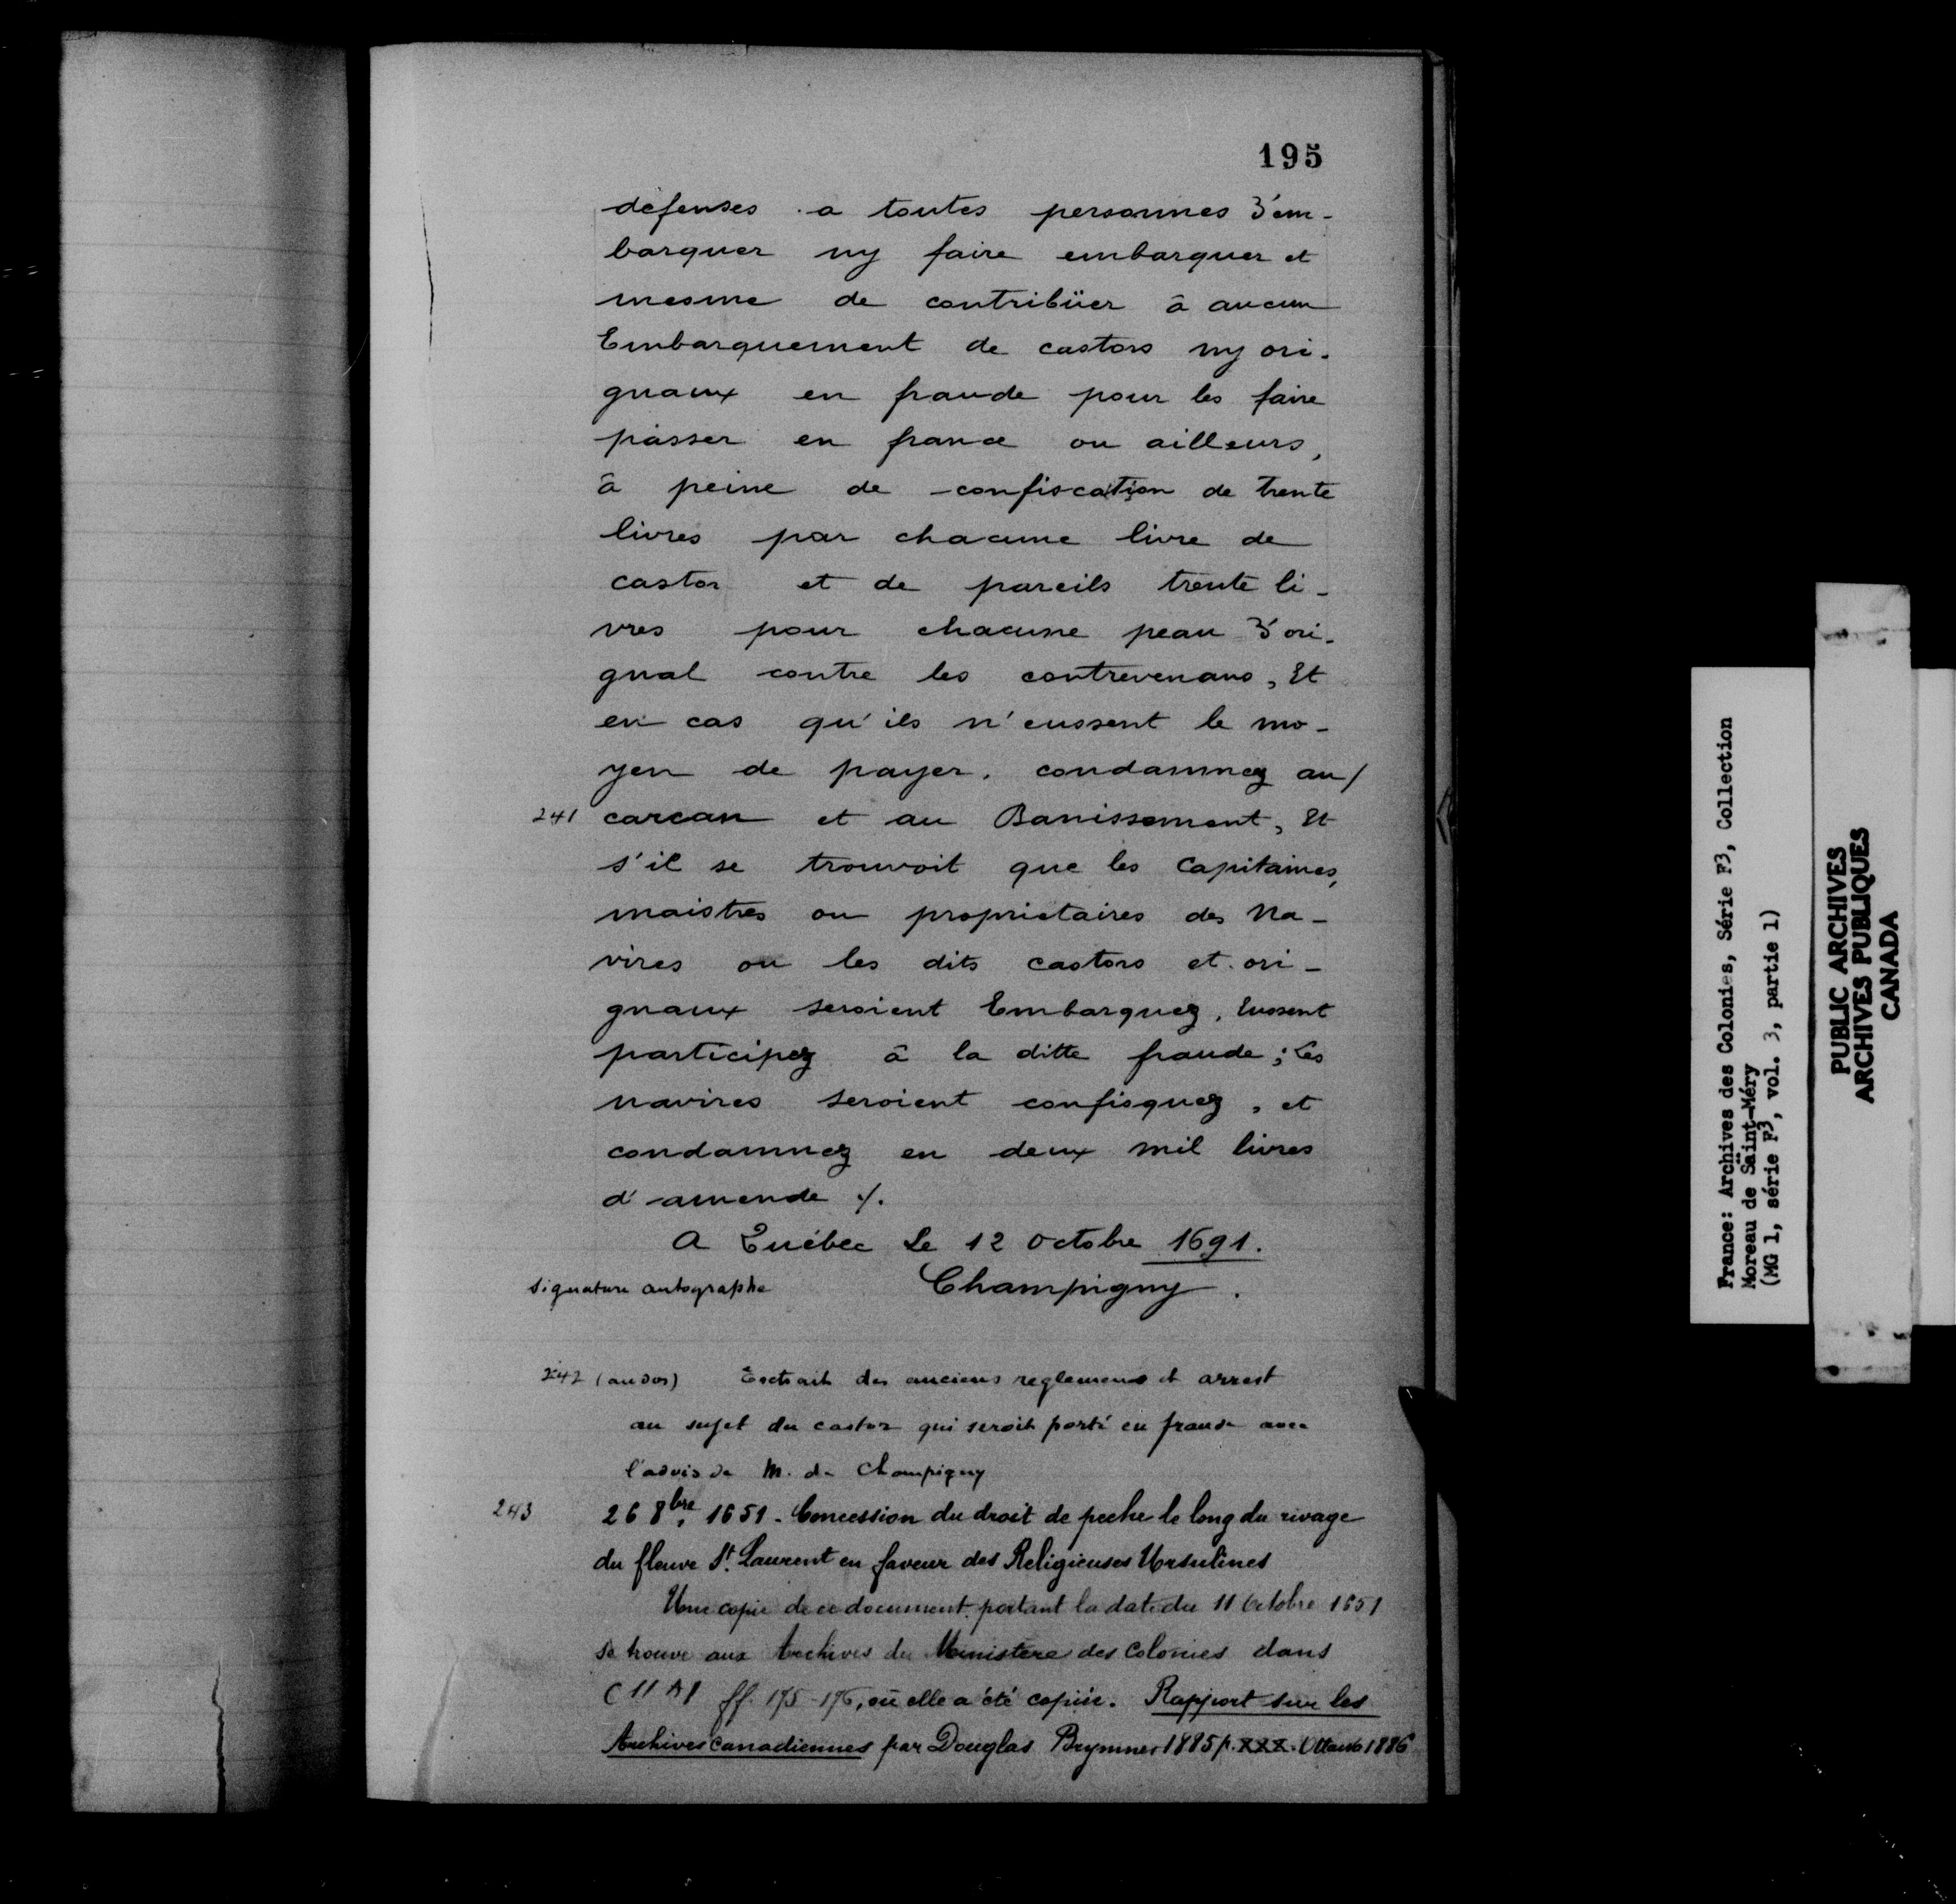 195
defenses a toutes personnes d'em-
barquer ny faire embarquer et
mesme de contribüer à aucun
Embarquement de castors ny ori-
gnaux en fraude pour les faire
passer en france ou ailleurs,
à peine de confiscation de trente
livres par chacune livre de
castor et de pareils trente li-
vres pour chacune peau d'ori-
gnal contre les contrevenans, Et
en cas qu'ils n'eussent le mo-
yen de payer, condamnez au/
241 carcan et au Banissement, Et
s'il se trouvoit que les Capitaines,
maistres ou proprietaires des Na-
vires ou les dits castors et ori-
gnaux seroient Embarquez, Eussent
participez à la ditte fraude; Les
navires seroient confisquez, et
condamnez en deux mil livres
d'amende ./.
A Québec Le 12 octobre 1691.
signature autographe Champigny.
242 (au dos) Extrait des anciens reglemens et arrest
au sujet du castor qui seroit porté en fraude avec
l'advis de M. de Champigny
243 26 8bre, 1651. Concession du droit de peche le long du rivage
du fleuve St. Laurent en faveur des Religieuses Ursulines
Une copie de ce document portant la date du 11 Octobre 1651
se trouve aux Archives du Ministère des Colonies dans
C 11 A 1 ff. 175-176, où elle a été copiée. Rapport sur les
Archives canadiennes par Douglas Brymner 1885 p. XXX. Ottawa 1886
France: Archives des Colonies, Série F3, Collection
Moreau de Saint-Méry
(MG 1, série F3, vol. 3, partie 1)
PUBLIC ARCHIVES
ARCHIVES PUBLIQUES
CANADA